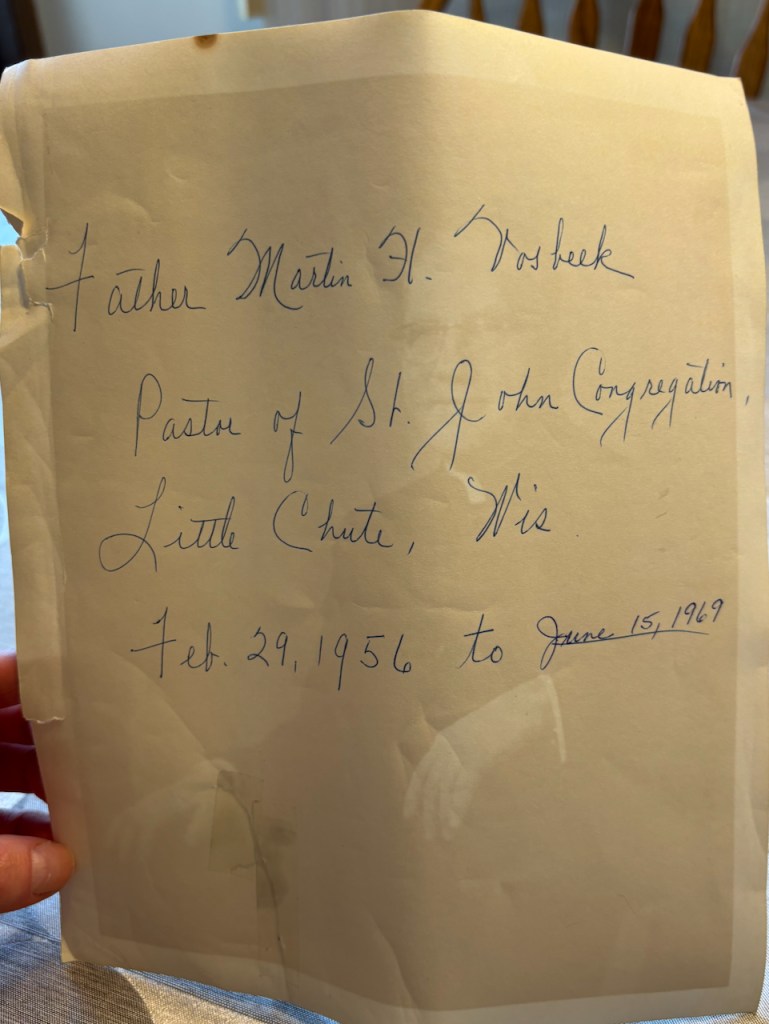 Father Martin H. Vosbeek
Pastor of St. John Congregation,
Little Chute, Wis.
Feb. 29, 1956 to June 15, 1969